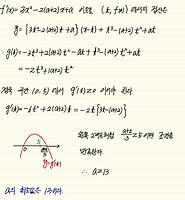 f'(x)=3x²-2(a+2)x+a 이므로 (t, f(t)) 에서의 접선은
y = {3t²-2(a+2)t+a}(x-t)+t³-(a+2)t²+at
∴ g(t)=-3t³+2(a+2)t²-at+t³-(a+2)t²+at
=-2t³+(a+2)t²
열린 구간 (0, 5) 에서 g'(t)≥0 이어야 한다
g'(t)=-6t²+2(a+2)t=-2t{3t-(a+2)}
0 5 (a+2)/3
y=g'(t)
(a+2)/3 ≥5 이면 조건을
만족한다
∴ a≥13
a의 최솟값은 13이다.